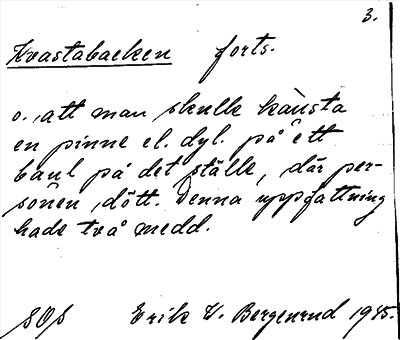 3.
Kvastabacken forts.
o. att man skulle kasta
en pinne el. dyl. på ett
baul på det ställe, där per-
sonen dött. Denna uppfattning
hade två medd.
SOS Erik W. Bergenrud 1945.